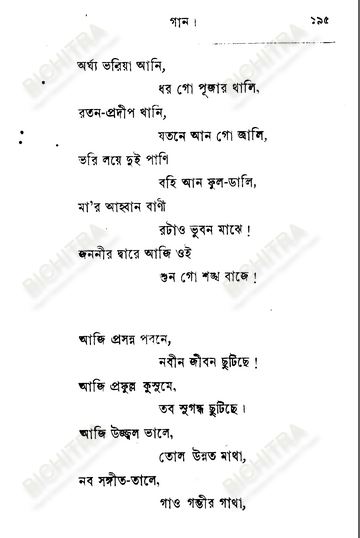 গান। ১৯৫
অর্ঘ্য ভরিয়া আনি,
ধর গো পূজার থালি,
রতন-প্রদীপ খানি,
যতনে আন গো জালি,
ভরি লয়ে দুই পাণি
বহি আন ফুল-ডালি,
মা'র আহ্বান বাণী
রটাও ভুবন মাঝে!
জননীর দ্বারে আজি ওই
শুন গো শঙ্খ বাজে!
আজি প্রসন্ন পবনে,
নবীন জীবন ছুটিছে!
আজি প্রফুল্ল কুসুমে,
তব সুগন্ধ ছুটিছে।
আজি উজ্জ্বল ভালে,
তোল উন্নত মাথা,
নব সঙ্গীত-তালে,
গাও গম্ভীর গাথা,
BICHITRA
BICHITRA
BICHITRA
BICHITRA
BICHITRA
BICHITRA